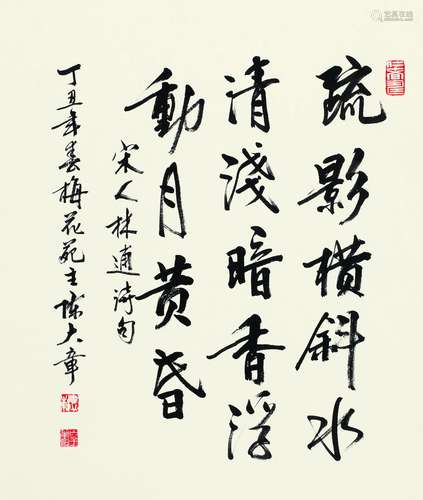 疏影橫斜水
清淺暗香浮
動月黄昏
宋人林逋诗句
丁丑年春梅花苑主陈大章